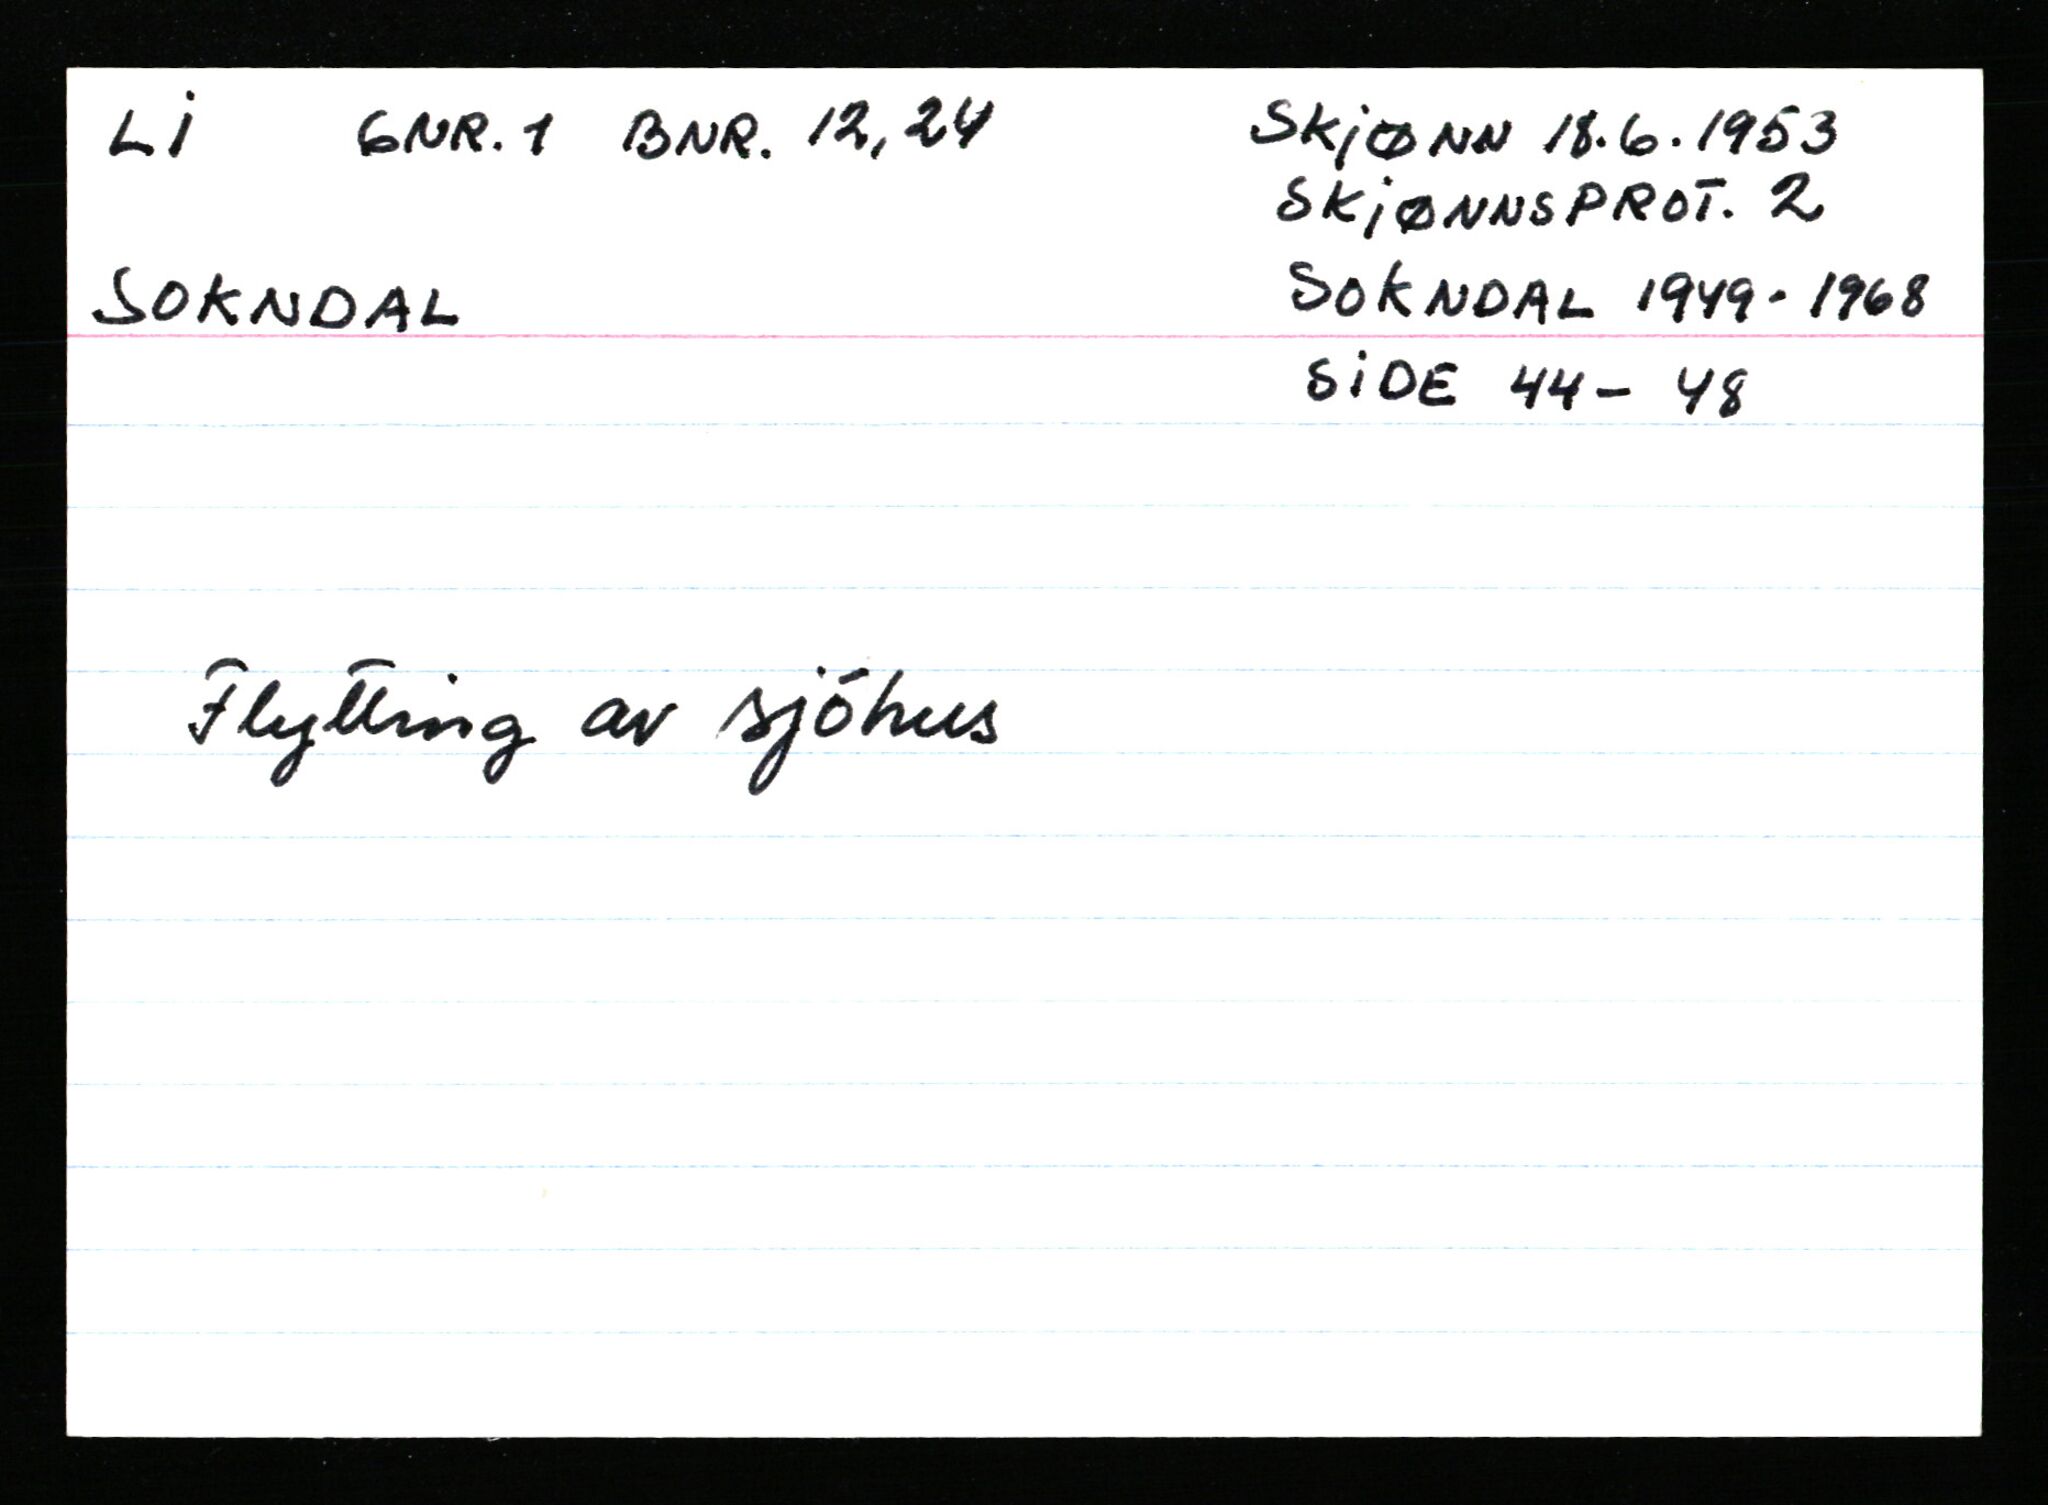 LI GNR. 1 BNR. 12, 24
SOKNDAL
SKJØNN 18.6.1953
SKJØNNSPROT. 2
SOKNDAL 1949-1968
SIDE 44-48
Flytting av sjóhus